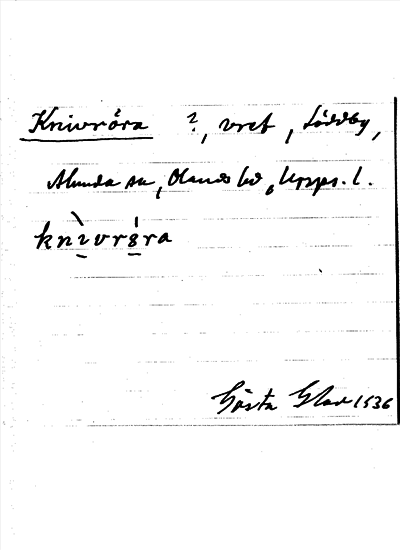 Knivröra ?, vret, Löddby,
Alunda sn, Olands hd, Upps. l.
knìvrǿra
Gösta Glav 1936